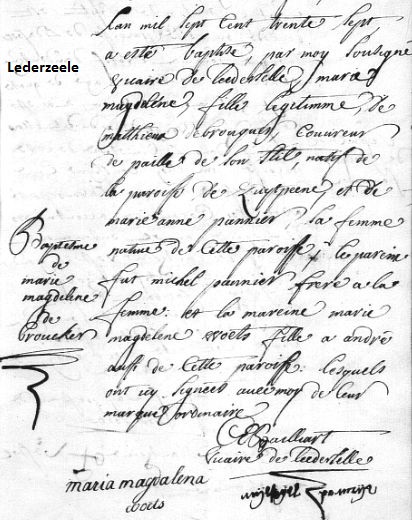 Lederzeele
Lan mil sept Cent trente sept
a esté baptisé, par moy soubsigné
vicaire de leederselle, marie
magdelene, fille legitimme, de
mathieu debrouquer, Couvreur
de paille de son stil, natif de
la paroisse de Zuytpeene, et de
marie anne pannier, sa femme
native de Cette paroisse, le parein
fut michel pannier frere a la
femme. et la mareine marie
magdelene woets fille a andré
aussi de Cette paroisse. lesquels
ont icy signeés avec moy de leur
marque ordinaire
Baptesme
de
marie
magdeline
de
broucker
Bailliart
vicaire de leederselle
maria magdalena
woets